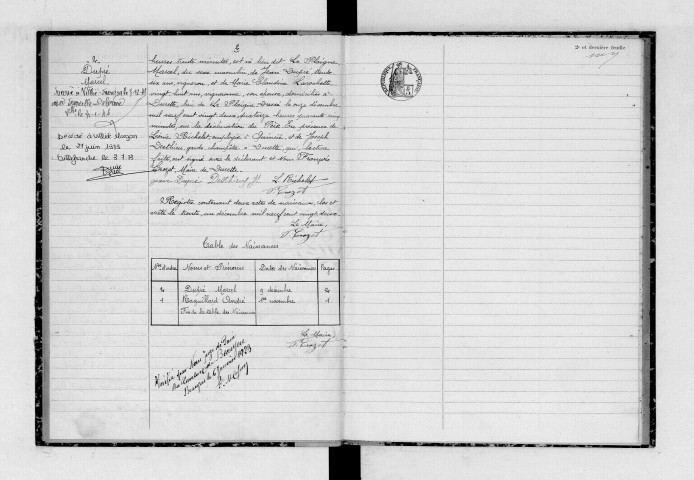 2
Dupré
Marcel
heures trente minutes, est né lieu dit La Pleigne,
Marcel, du sexe masculin, de Jean Dupré, trente
six ans, vigneron, et de Marie Claudine Larochette
vingt huit ans, vigneronne, son épouse, domiciliés à
Durette, lieu de La Pleigne. Dressé le onze décembre
mil neuf cent vingt deux, quatorze heures quarante cinq
minutes, sur la déclaration du Père. En présence de
Louis Richelet, employé à Quincié, et de Joseph
Desthieux, garde champêtre à Durette, qui, lecture
faite, ont signé avec le déclarant et nous François
Crozet, Maire de Durette.
Jean Dupré Desthieux Jh L. Richelet
F. Crozet
Décédé à
le 21 juin 1978
Villefranche le 3 7 78
Registre contenant deux actes de naissances, clos et
arrêté le trente un décembre mil neuf cent vingt deux.
Le Maire,
F. Crozet
Table des Naissances
Nos d'ordre Noms et Prénoms Dates des Naissances Pages
2 Dupré Marcel 9 décembre 2
1 Raquillard André 1er novembre 1
Fin de la table des Naissances
Le Maire
F. Crozet
Vérifié par Nous Juge de Paix
du Canton de Beaujeu
Beaujeu le 6 Janvier 1923
2e et dernière feuille